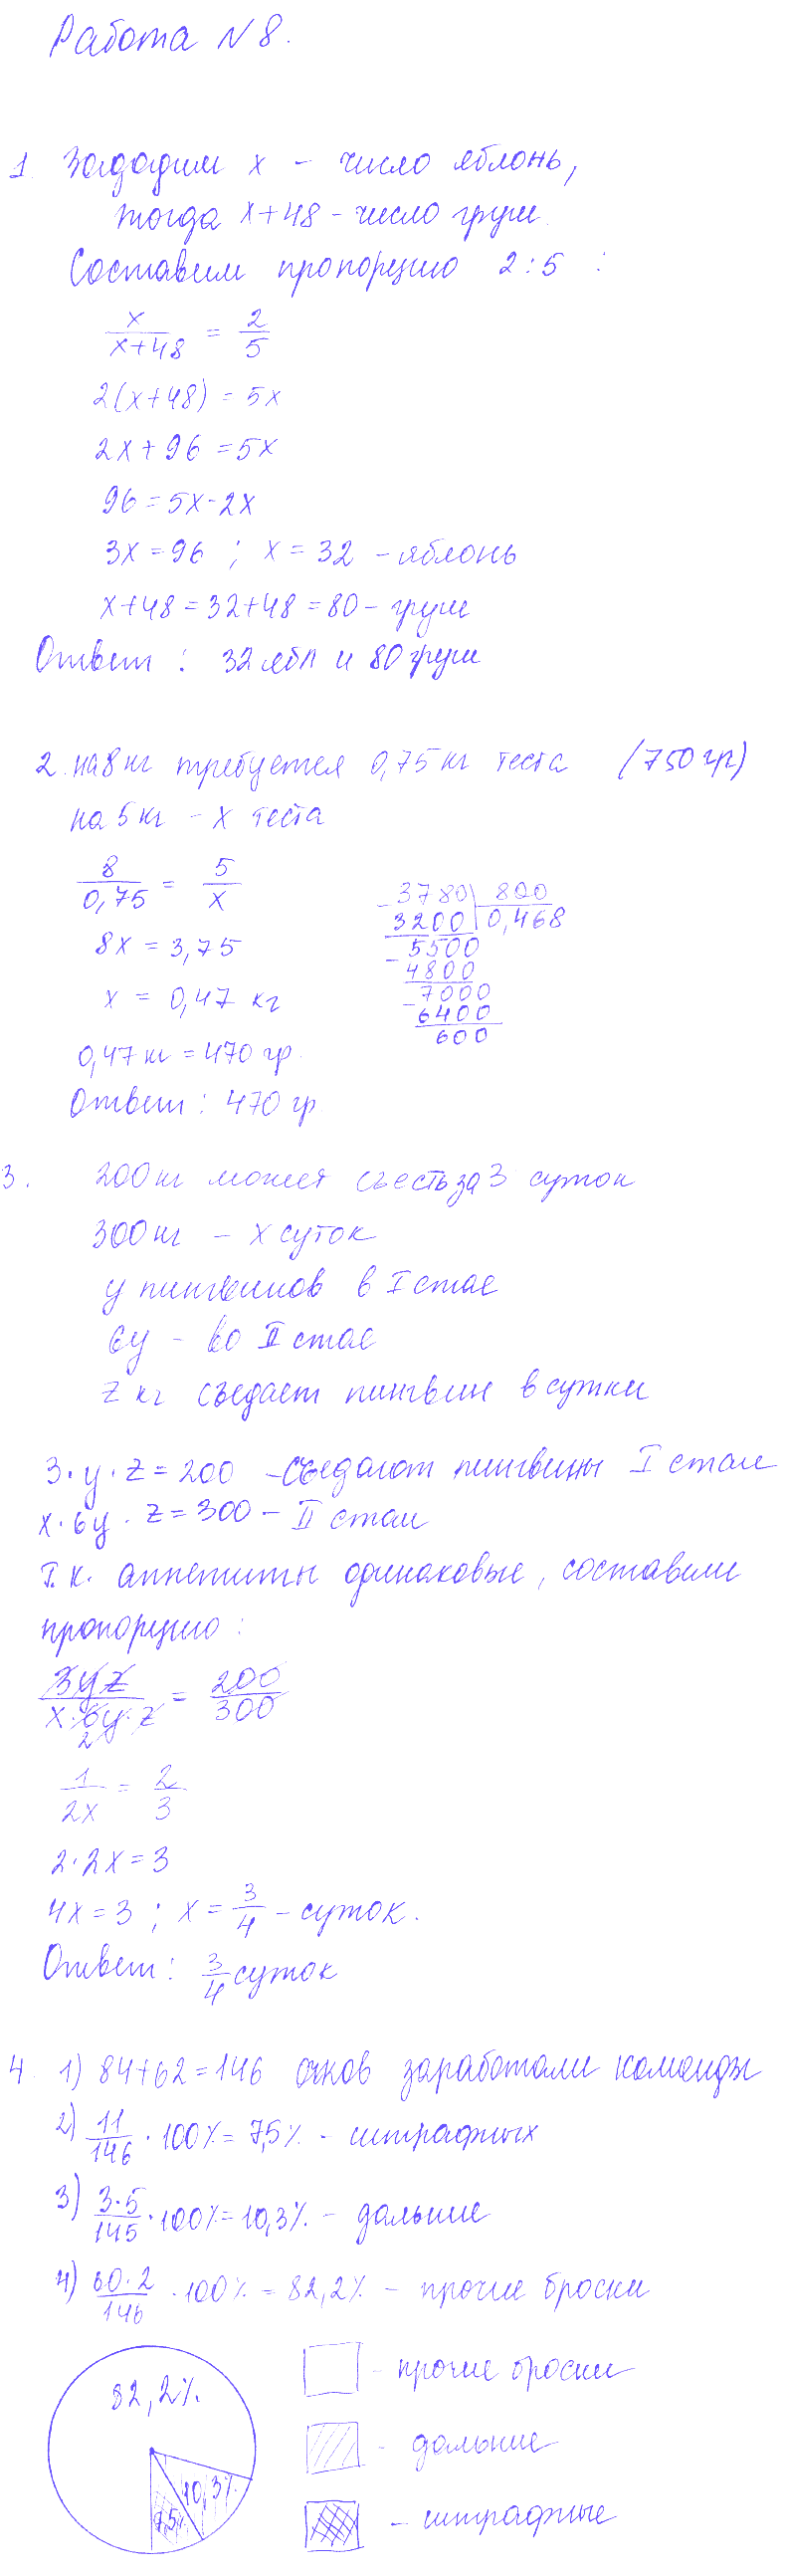 Работа N 8.
1. Зададим x – число яблонь,
тогда x+48 – число груш.
Составим пропорцию 2:5 :
x/(x+48) = 2/5
2(x+48) = 5x
2x + 96 = 5x
96 = 5x - 2x
3x = 96 ; x = 32 – яблонь
x+48 = 32+48 = 80 – груш
Ответ : 32 ябл и 80 груш
2. на 8 кг требуется 0,75 кг теста (750 гр)
на 5 кг – x теста
8/0,75 = 5/x
8x = 3,75
x = 0,47 кг
0,47 кг = 470 гр.
Ответ : 470 гр.
3780 | 800
3200 | 0,468
5500
4800
7000
6400
600
3. 200 кг может съесть за 3 суток
300 кг – x суток
y пингвинов в I стае
6y – во II стае
z кг съедает пингвин в сутки
3·y·z = 200 – съедают пингвины I стаи
x·6y·z = 300 – II стаи
т.к. аппетиты одинаковые, составим
пропорцию :
3yz/(x·6y·z) = 200/300
2
1/2x = 2/3
2·2x = 3
4x = 3 ; x = 3/4 – суток.
Ответ : 3/4 суток
4. 1) 84+62 = 146 очков заработали команды
2) 11/146 · 100% = 7,5% – штрафных
3) 3·5/145 · 100% = 10,3% – дальние
4) 60·2/146 · 100% = 82,2% – прочие броски
82,2%
10,3%
7,5%
– прочие броски
– дальние
– штрафные